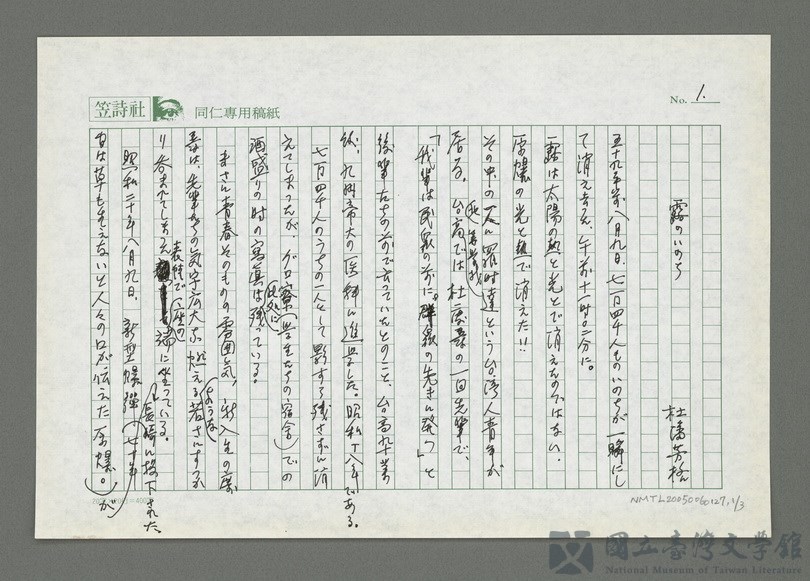 笠詩社
同仁専用稿紙
No. 1.
霧のいのち
杜潘芳格
五十九年前八月九日、七万四千人ものいのちが一瞬にし
て消えさる、午前十一時〇二分に。
霧は太陽の熱と光とで消えたのではない、
原爆の光と熱で消えた!!
その中の一人に羅時達という台湾人青年が
居る。台高では杜慶壽の一回先輩で、
「我輩は民衆の前に。群衆の先きに発つ」と
後輩たちの前で云っていたとのこと、台高卒業
後、九州帝大の医科に進学した。昭和十八年である。
七万四千人のうちの一人として影すら残さずに消
えてしまったが、ゲロ寮(学生たちの宿舎)での
酒盛りの時の写真は此処に残っている。
まさに青春そのものの雰囲気、新入生の慶
壽は、先輩たちの気宇広大な燃える若さにすっか
り呑まれてしまったような表情で座の端に坐っている。
昭和二十年八月九日、長崎に投下された新型爆弾(七十年
間は草も生えないと人々の口が伝えた原爆。)が
NMTL20050060127,1/3
國立臺灣文學館
National Museum of Taiwan Literature